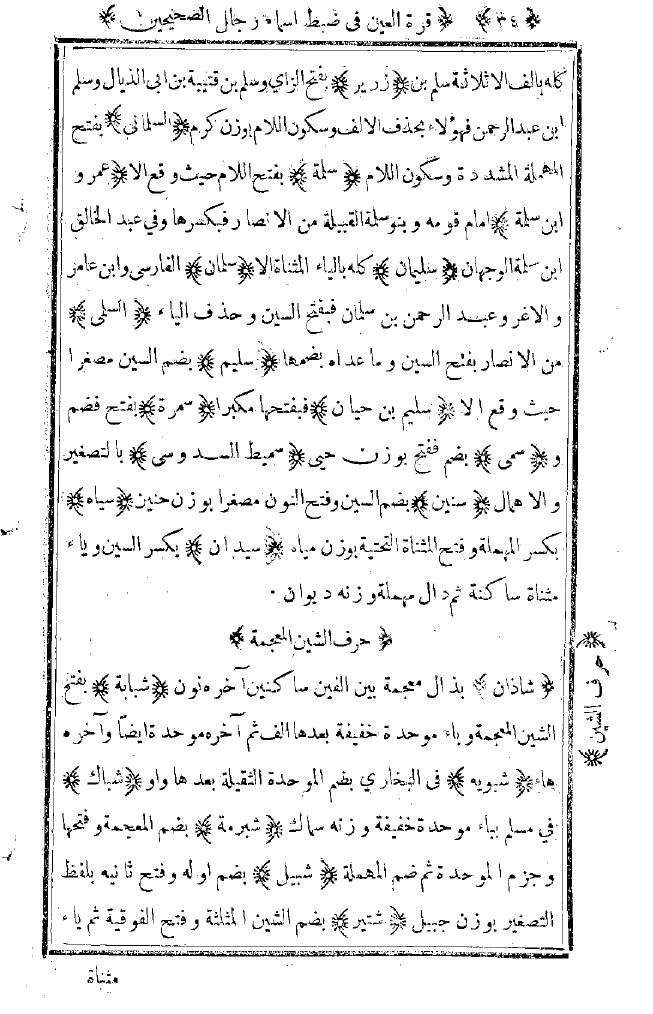 ﴿٣٤﴾ ﴿قرة العين فى ضبط اسماء رجال الصحيحين﴾
كله بالف الا ثلاثة سلم بن ﴿زرير﴾ بفتح الزاي وسلم بن قتيبة بن ابى الذيال وسلم
ابن عبد الرحمن فهؤلاء بحذف الالف وسكون اللام بوزن كرم ﴿السلمانى﴾ بفتح
المهملة المشددة وسكون اللام ﴿سلمة﴾ بفتح اللام حيث وقع الا ﴿عمرو
ابن سلمة﴾ امام قومه وبنو سلمة القبيلة من الانصار فبكسرها وفي عبد الخالق
ابن سلمة الوجهان ﴿سليمان﴾ كله بالياء المثناة الا ﴿سلمان﴾ الفارسى وابن عامر
والاغر وعبد الرحمن بن سلمان فبفتح السين وحذف الياء ﴿السلمى﴾
من الانصار بفتح السين وما عداه بضمها ﴿سليم﴾ بضم السين مصغرا
حيث وقع الا ﴿سليم بن حيان﴾ فبفتحها مكبرا ﴿سمرة﴾ بفتح فضم
و﴿سمى﴾ بضم ففتح بوزن حيي ﴿سميط السدوسى﴾ بالتصغير
والاهمال ﴿سنين﴾ بضم السين وفتح النون مصغرا بوزن حنين ﴿سياه﴾
بكسر المهملة وفتح المثناة التحتية بوزن مياه ﴿سيدان﴾ بكسر السين وياء
مثناة ساكنة ثم دال مهملة وزنه ديوان ٠
﴿حرف الشين المعجمة﴾
﴿حرف الشين﴾
﴿شاذان﴾ بذال معجمة بين الفين ساكنين آخره نون ﴿شبابة﴾ بفتح
الشين المعجمة وباء موحدة خفيفة بعدها الف ثم آخره موحدة ايضًا وآخره
هاء ﴿شبويه﴾ فى البخاري بضم الموحدة الثقيلة بعدها واو ﴿شباك﴾
في مسلم بباء موحدة خفيفة وزنه سماك ﴿شبرمة﴾ بضم المعجمة وفتحها
وجزم الموحدة ثم ضم المهملة ﴿شبيل﴾ بضم اوله وفتح ثانيه بلفظ
التصغير بوزن جبيل ﴿شتير﴾ بضم الشين المثلثة وفتح الفوقية ثم ياء
مثناة